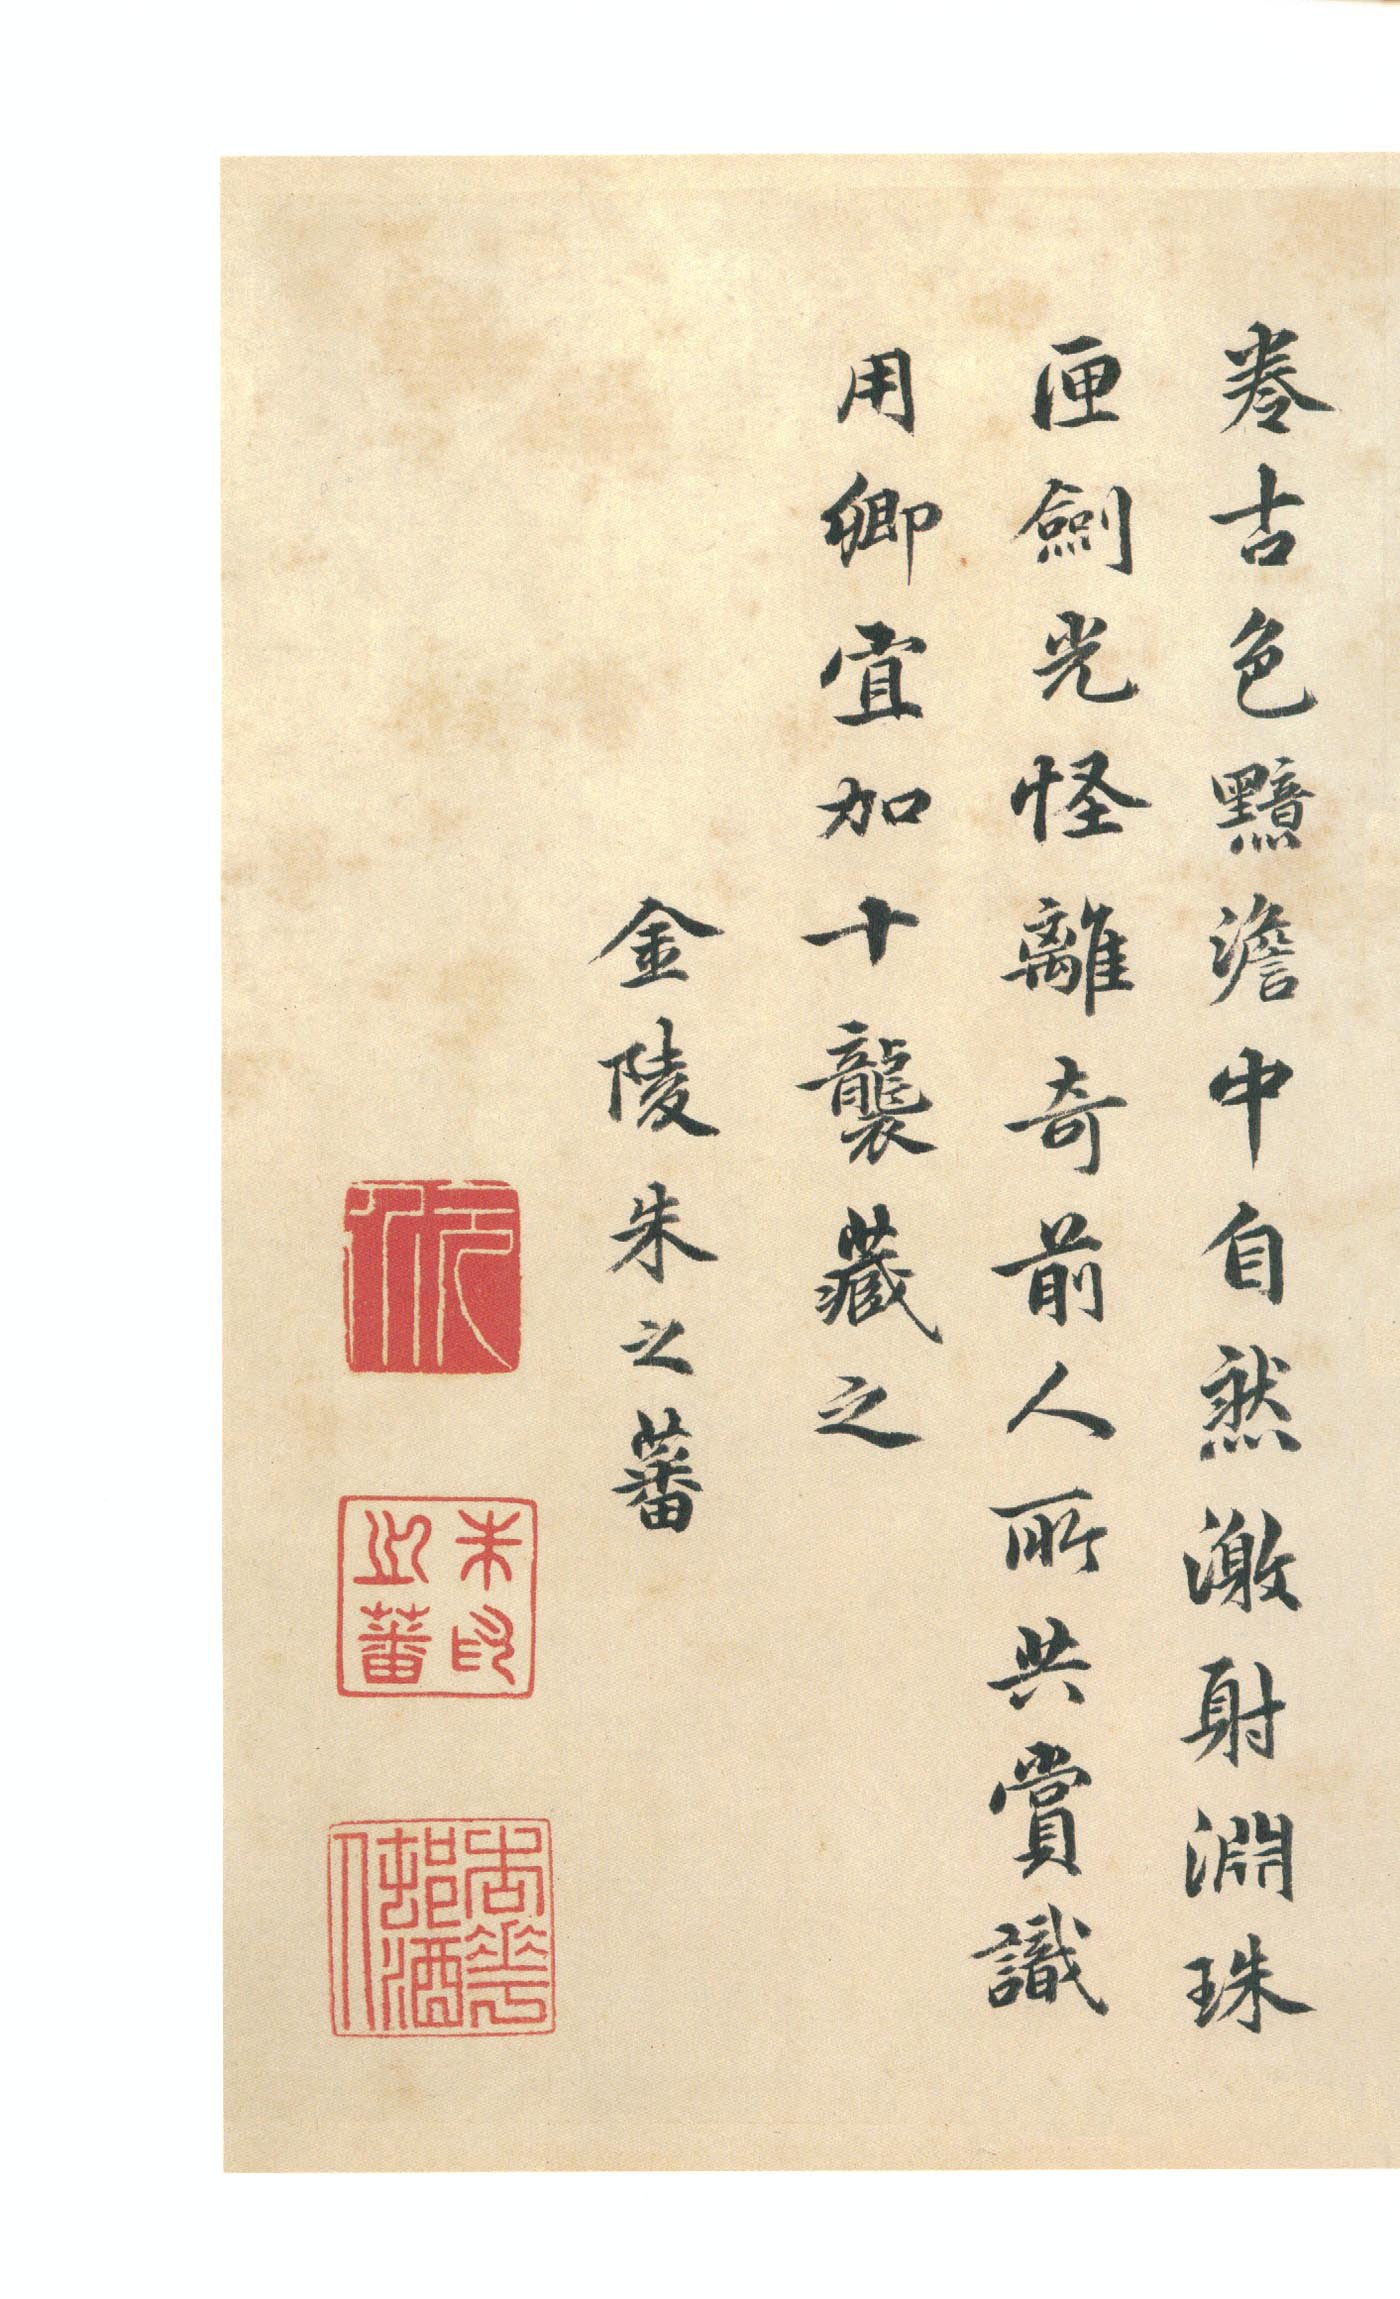 卷古色黯澹中自然激射淵珠
匣劍光怪離奇前人所共賞識
用卿宜加十襲藏之
金陵朱之蕃
朱之蕃印